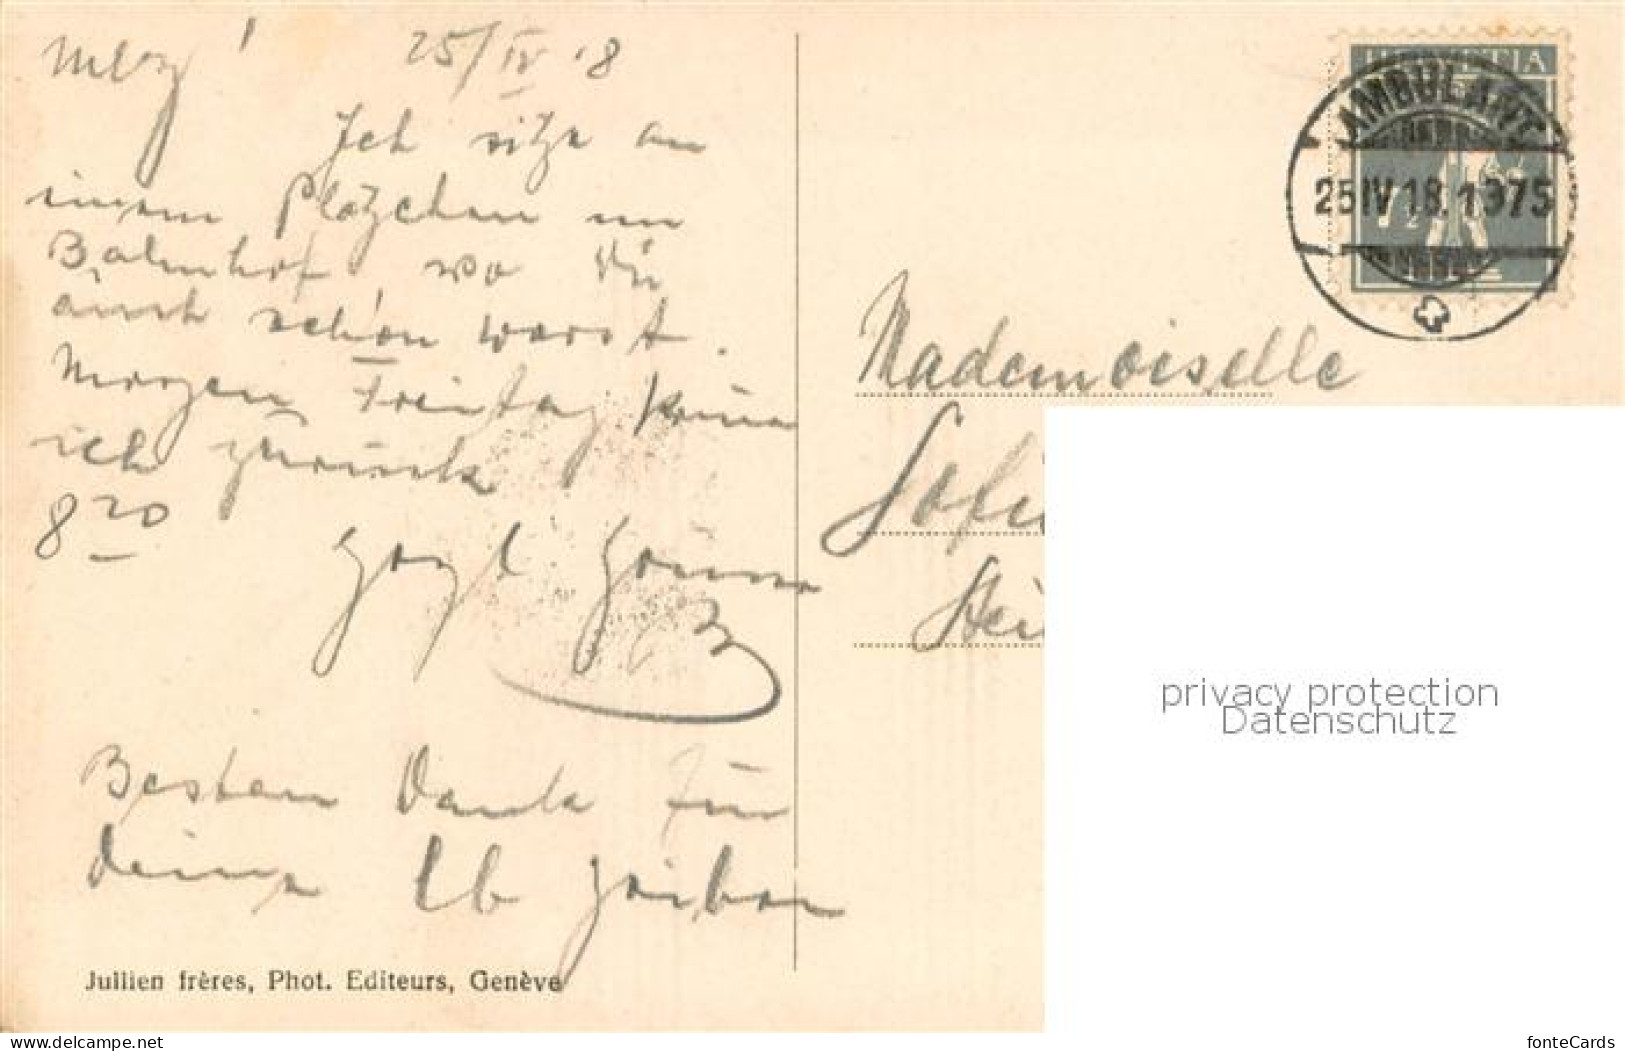 25/IV 18
Ich sitze an
einem Plätzchen im
Bahnhof, wo Du
auch schon warst.
Morgen Freitag komme
ich zurück
8 20
Besten Dank für
Deine lb
Jullien frères, Phot. Editeurs, Genève
HELVETIA
AMBULANT
25 IV 18. 1975
7½
Mademoiselle
privacy protection
Datenschutz
www.delcampe.net
fonteCards